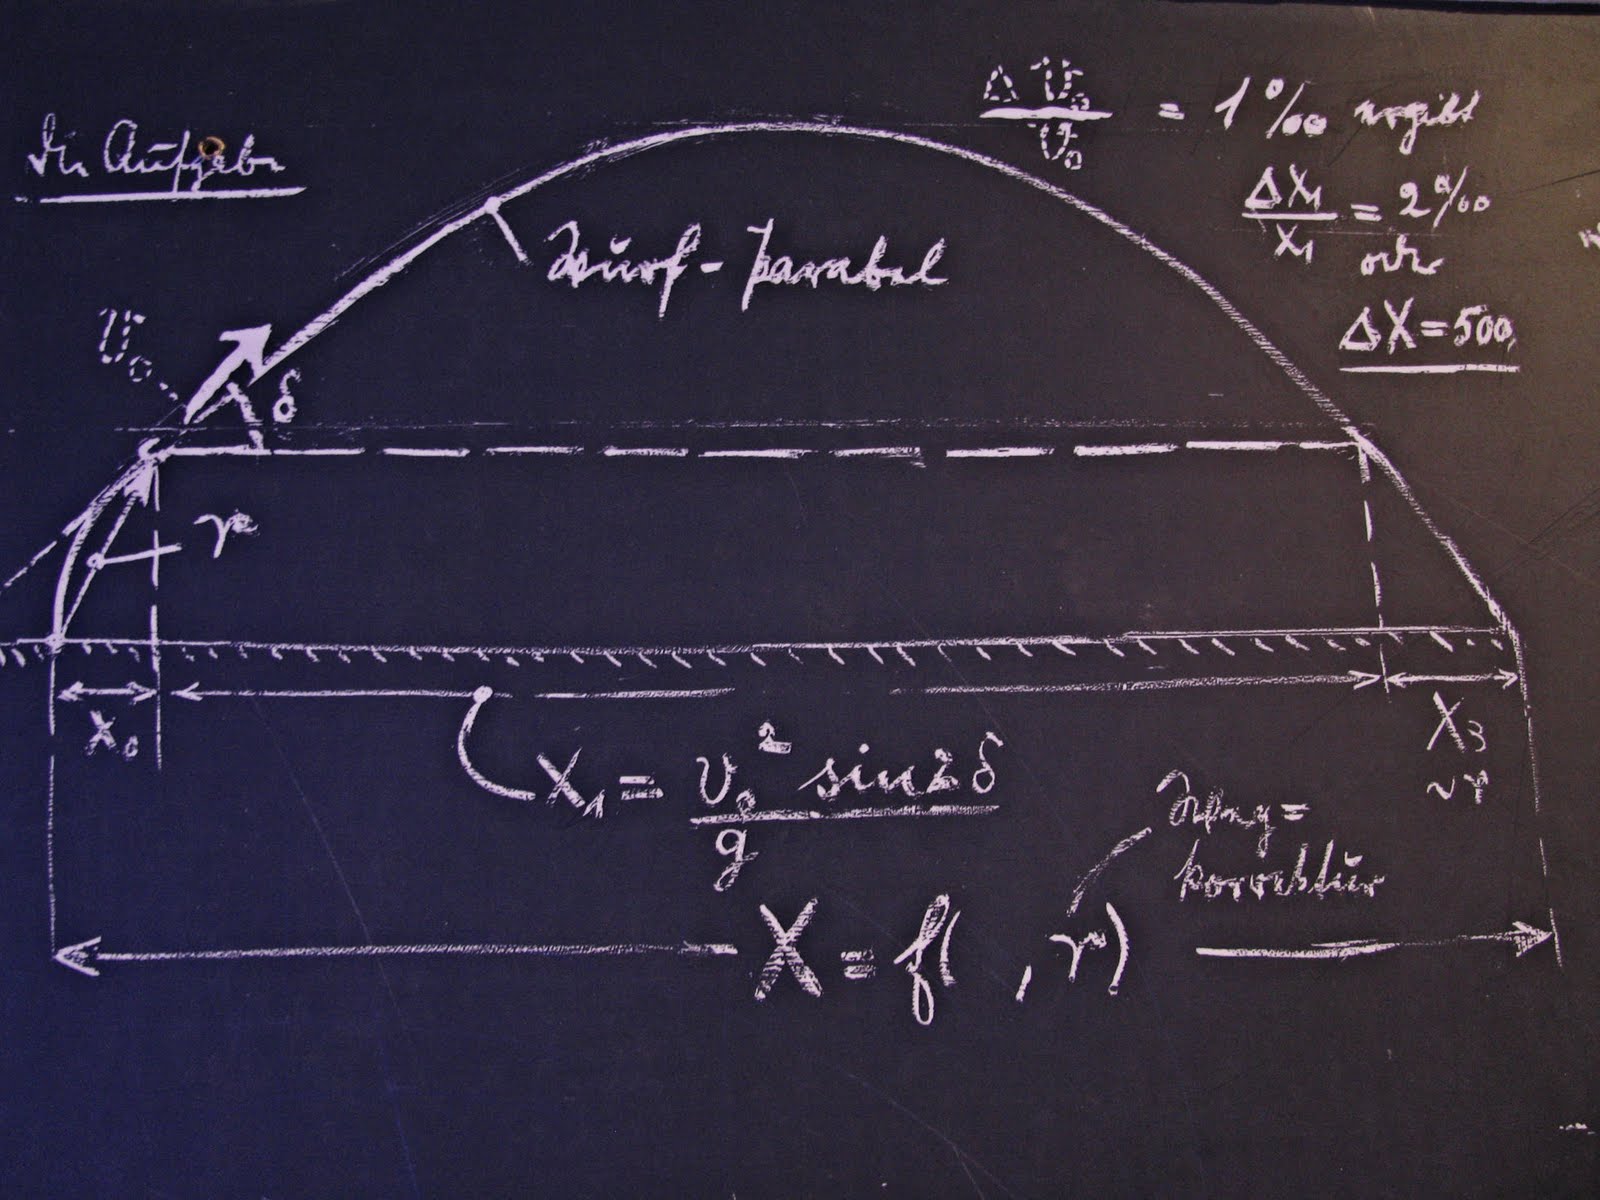 Die Aufgabe
Δ v₀ / v₀ = 1 ‰ ergibt
Δ X₁ / X₁ = 2 ‰
oder
Δ X = 500
Wurf-Parabel
v₀
δ
r
X₀
X₁ = v₀² sin 2δ / g
X₃
~r
korrektur
X = f( , r)